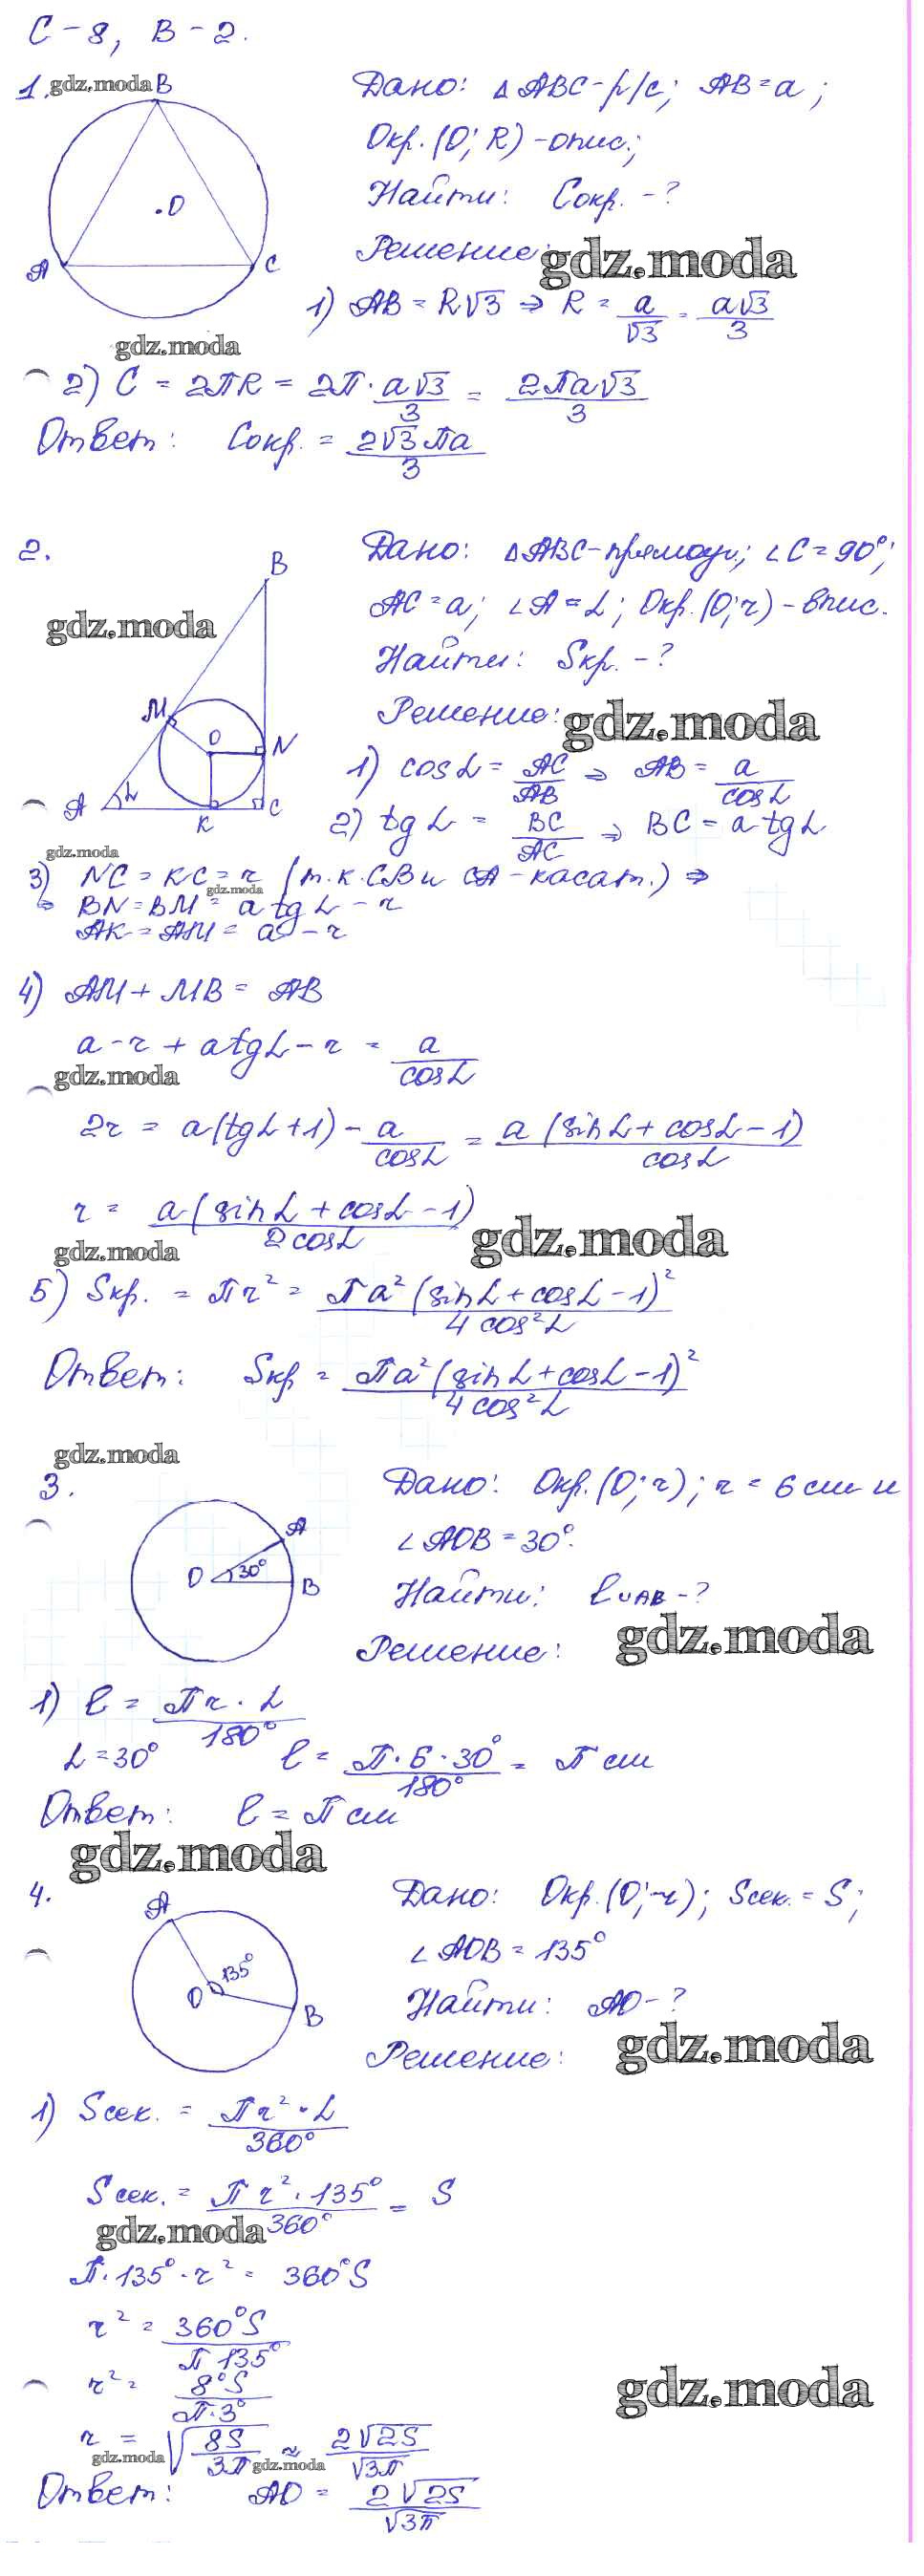 С-8, В-2.
1. gdz.moda
B
O
A
C
Дано: △ABC-р/с; AB=a;
Окр.(O; R)-опис.;
Найти: Cокр. -?
Решение:
gdz.moda
1) AB = R√3 ⇒ R = a/√3 = a√3/3
gdz.moda
2) C = 2πR = 2π · a√3/3 = 2πa√3/3
Ответ: Cокр. = 2√3πa/3
2.
B
M
O
N
A
α
K
C
gdz.moda
Дано: △ABC-прямоуг.; ∠C=90°;
AC=a; ∠A=α; Окр.(O; r)-впис.
Найти: Sкр. -?
Решение:
gdz.moda
1) cosα = AC/AB ⇒ AB = a/cosα
2) tgα = BC/AC ⇒ BC = a tgα
gdz.moda
3) NC = KC = r (т.к. CB и CA - касат.) ⇒
gdz.moda
⇒ BN = BM = a tgα - r
AK = AM = a - r
4) AM + MB = AB
a - r + a tgα - r = a/cosα
gdz.moda
2r = a(tgα+1) - a/cosα = a(sinα + cosα - 1)/cosα
r = a(sinα + cosα - 1)/2cosα
gdz.moda
gdz.moda
5) Sкр. = πr² = πa²(sinα + cosα - 1)²/4cos²α
Ответ: Sкр = πa²(sinα + cosα - 1)²/4cos²α
gdz.moda
3.
A
O 30°
B
Дано: Окр.(O; r); r = 6 см и
∠AOB = 30°.
Найти: l∪AB -?
Решение:
gdz.moda
1) l = πr · α/180°
α = 30° l = π · 6 · 30°/180° = π см
Ответ: l = π см
gdz.moda
4.
A
135°
O
B
Дано: Окр.(O; r); Sсек. = S;
∠AOB = 135°
Найти: AO -?
Решение:
gdz.moda
1) Sсек. = πr² · α/360°
Sсек. = πr² · 135°/360° = S
gdz.moda
π · 135° · r² = 360°S
r² = 360°S/π 135°
r² = 8°S/π · 3°
gdz.moda
r = √(8S/3π) ≈ 2√2S/√3π
gdz.moda
gdz.moda
Ответ: AO = 2√2S/√3π